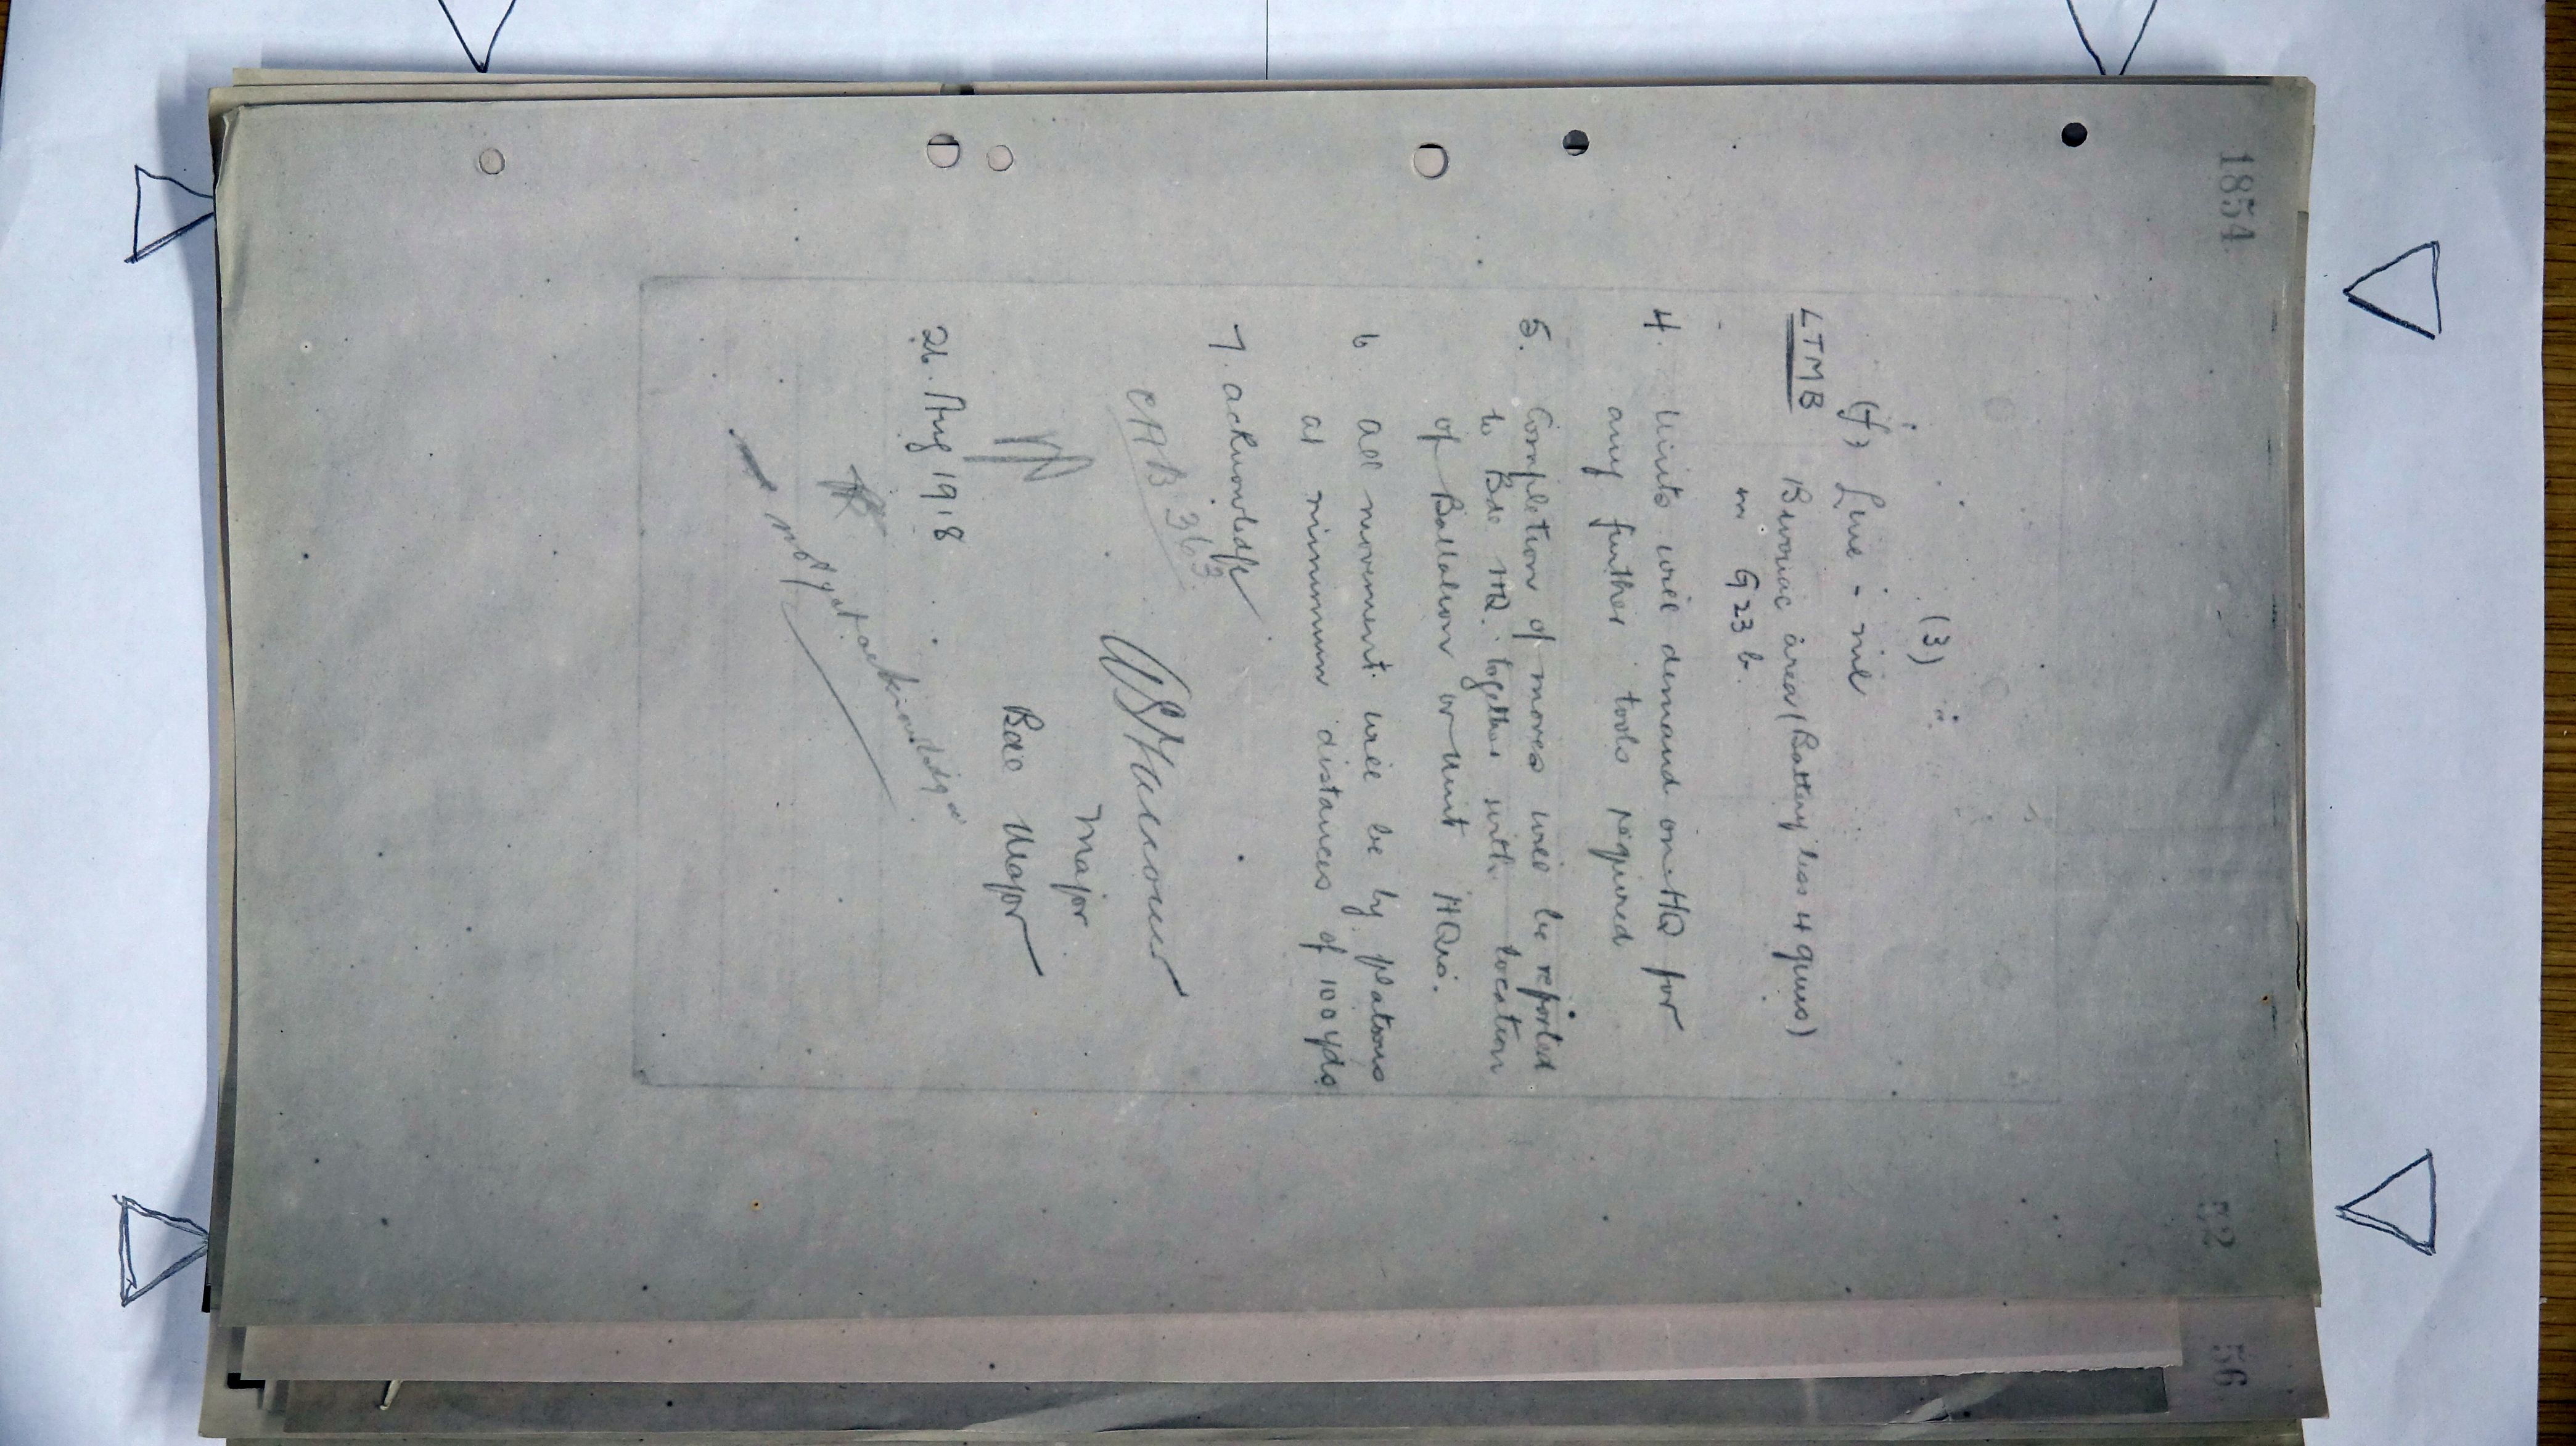 1854
52
56
(3)
(f) Line - nil
LTMB Bivouac area (Battery less 4 guns)
in G 23 b.
4. Units will demand on HQ for
any further tools required
5. Completion of moves will be reported
to Bde HQ. together with location
of Battalion or Unit HQrs.
6 All movement will be by platoons
at minimum distances of 100 yds
7. acknowledge
CAB 363
Major
Bde Major
26. Aug 1918
not yet acknowledged